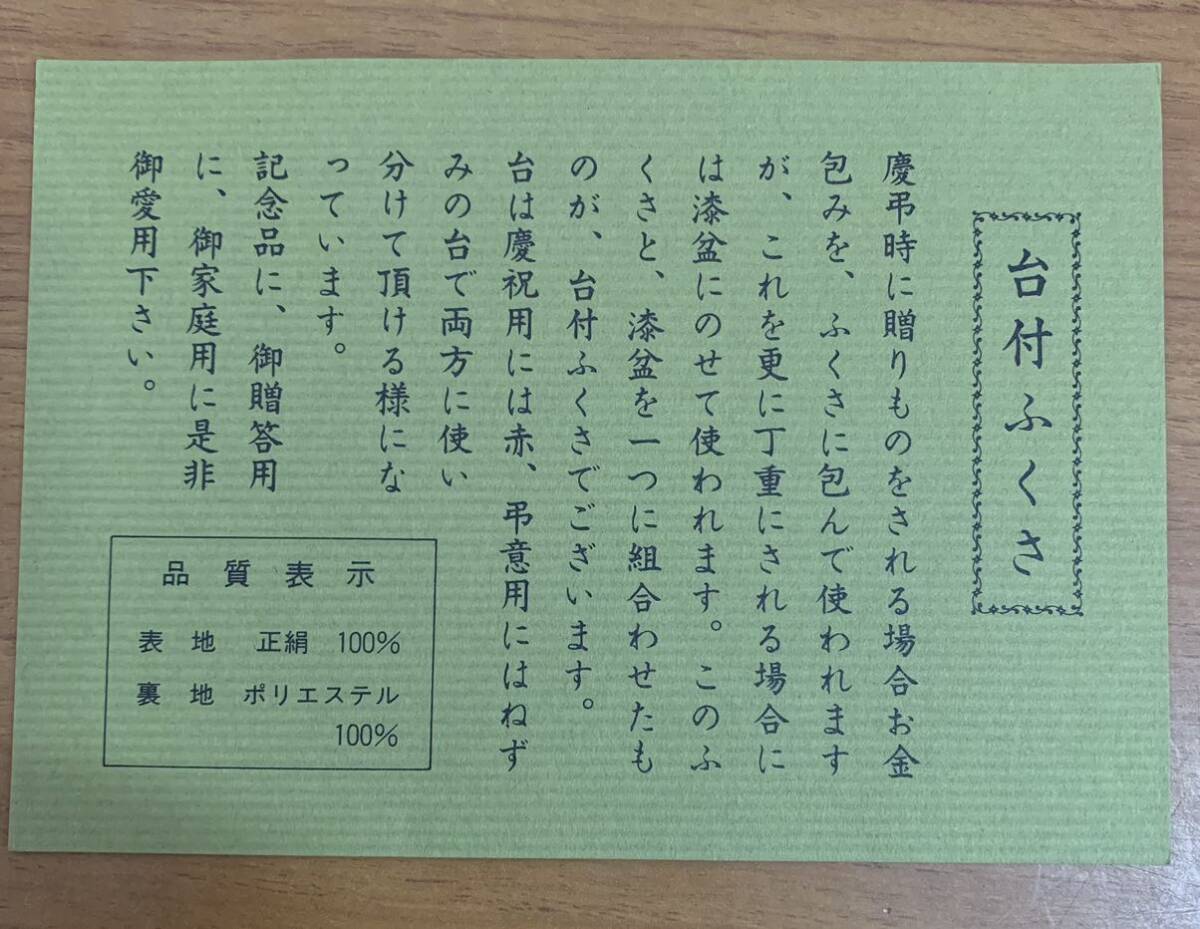 台付ふくさ
慶弔時に贈りものをされる場合お金
包みを、ふくさに包んで使われます
が、これを更に丁重にされる場合に
は漆盆にのせて使われます。このふ
くさと、漆盆を一つに組合わせたも
のが、台付ふくさでございます。
台は慶祝用には赤、弔意用にはねず
みの台で両方に使い
分けて頂ける様にな
っています。
記念品に、御贈答用
に、御家庭用に是非
御愛用下さい。
品質表示
表地 正絹 100%
裏地 ポリエステル
100%